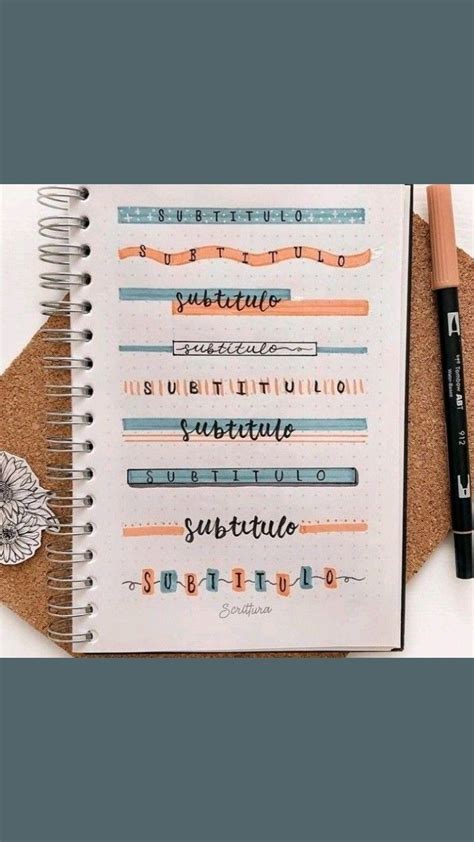 SUBTITULO
SUBTITULO
subtitulo
subtitulo
SUBTITULO
subtitulo
SUBTITULO
subtitulo
SUBTITULO
Scrittura
Tombow ABT
912